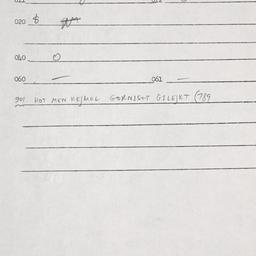 020
040 0
060 — 061 —
901 HOT MEN KEJMOL GORNISZT GILEJKT (789